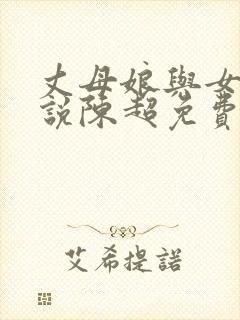 丈母娘與女
說陳超免費
艾希提諾